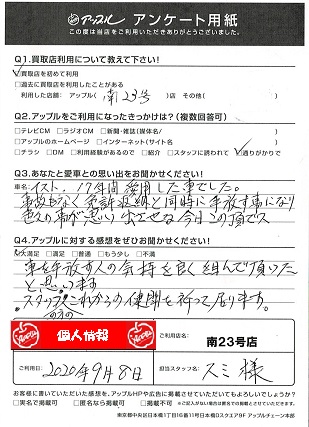 アップル アンケート用紙
この度は当店をご利用いただきありがとうございました。
Q1.買取店利用について教えて下さい!
☑買取店を初めて利用
□過去に買取店を利用したことがある
利用した店舗: アップル( 南23号 )店 その他( )
Q2.アップルをご利用になったきっかけは?(複数回答可)
□テレビCM □ラジオCM □新聞・雑誌(媒体名/ )
□アップルのホームページ □インターネット(サイト名 )
□チラシ □DM □利用経験があるので □紹介 □スタッフに誘われて ☑通りがかりで
Q3.あなたと愛車との思い出をお聞かせください!
車名: イスト、17年間愛用した車でした。
事故もなく免許返納と同時に手放す事になり
色々の事が思い出させな今日この頃です
Q4.アップルに対する感想をぜひお聞かせください!
☑大満足 □満足 □普通 □もう少し □不満
車を手放す人の気持を良く組んで頂いた
と思います
スタッフのこれからの健闘を祈って居ります。
個人情報
ご利用店名:
南23号店
ご利用日: 2020年9月8日
担当スタッフ名: スミ様
お客様に書いていただいた感想を、アップルHPや広告に掲載させていただいてもよろしいでしょうか?
□実名で掲載可 □匿名なら掲載可 □掲載不可
東京都中央区日本橋1丁目16番11号日本橋Dスクエア9F アップルチェーン本部